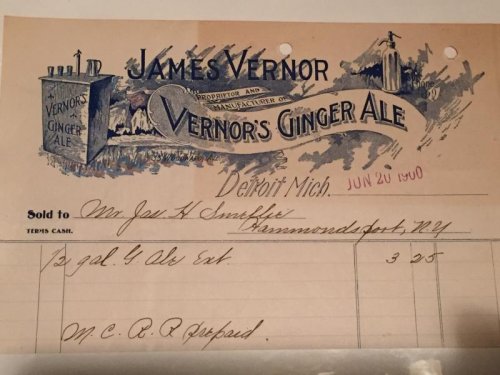 JAMES VERNOR
PROPRIETOR AND
MANUFACTURER OF
VERNOR'S GINGER ALE
VERNOR'S
GINGER
ALE
Detroit Mich. JUN 20 1900
Sold to Mr. Jas H Smellie
TERMS CASH. Hammondsport, N.Y
1/2 gal. G Ale Ext. 3 25
M. C. R. R prepaid.